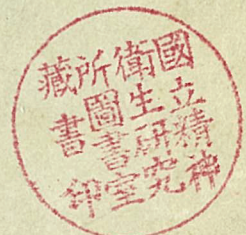 國立精神
衛生研究
所圖書室
藏書印